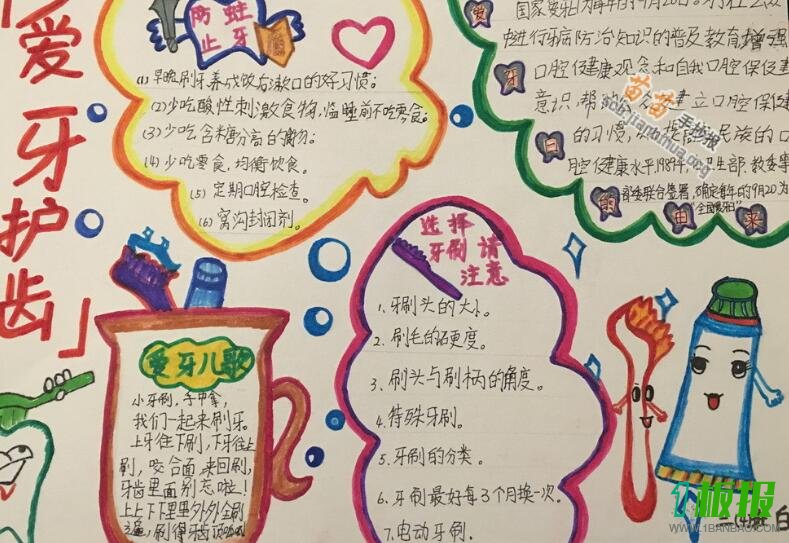 爱牙护齿
防蛀
止牙
(1)早晚刷牙养成饭后漱口的好习惯;
(2)少吃酸性刺激食物,临睡前不吃零食;
(3)少吃含糖分高的食物;
(4)少吃零食,均衡饮食。
(5)定期口腔检查。
(6)窝沟封闭剂。
爱牙日的由来
国家爱牙日为每年的9月20日。
进行牙病防治知识的普及教育增强
口腔健康观念和自我口腔保健
意识,帮 建立口腔保健
的习惯, 提高 民族的口
腔健康水平,1989年, 卫生部、教委等
部委联合签署,确定每年的9月20为
"全国爱牙日"
选择
牙刷请
注意
1、牙刷头的大小。
2、刷毛的硬度。
3、刷头与刷柄的角度。
4、特殊牙刷。
5、牙刷的分类。
6、牙刷最好每3个月换一次。
7、电动牙刷。
爱牙儿歌
小牙刷,手中拿,
我们一起来刷牙。
上牙往下刷,下牙往上
刷,咬合面来回刷,
牙齿里面别忘啦!
上上下下里里外外全刷
遍,刷得牙齿顶呱呱
苗苗手抄报
板报
WWW.1BANBAO.COM